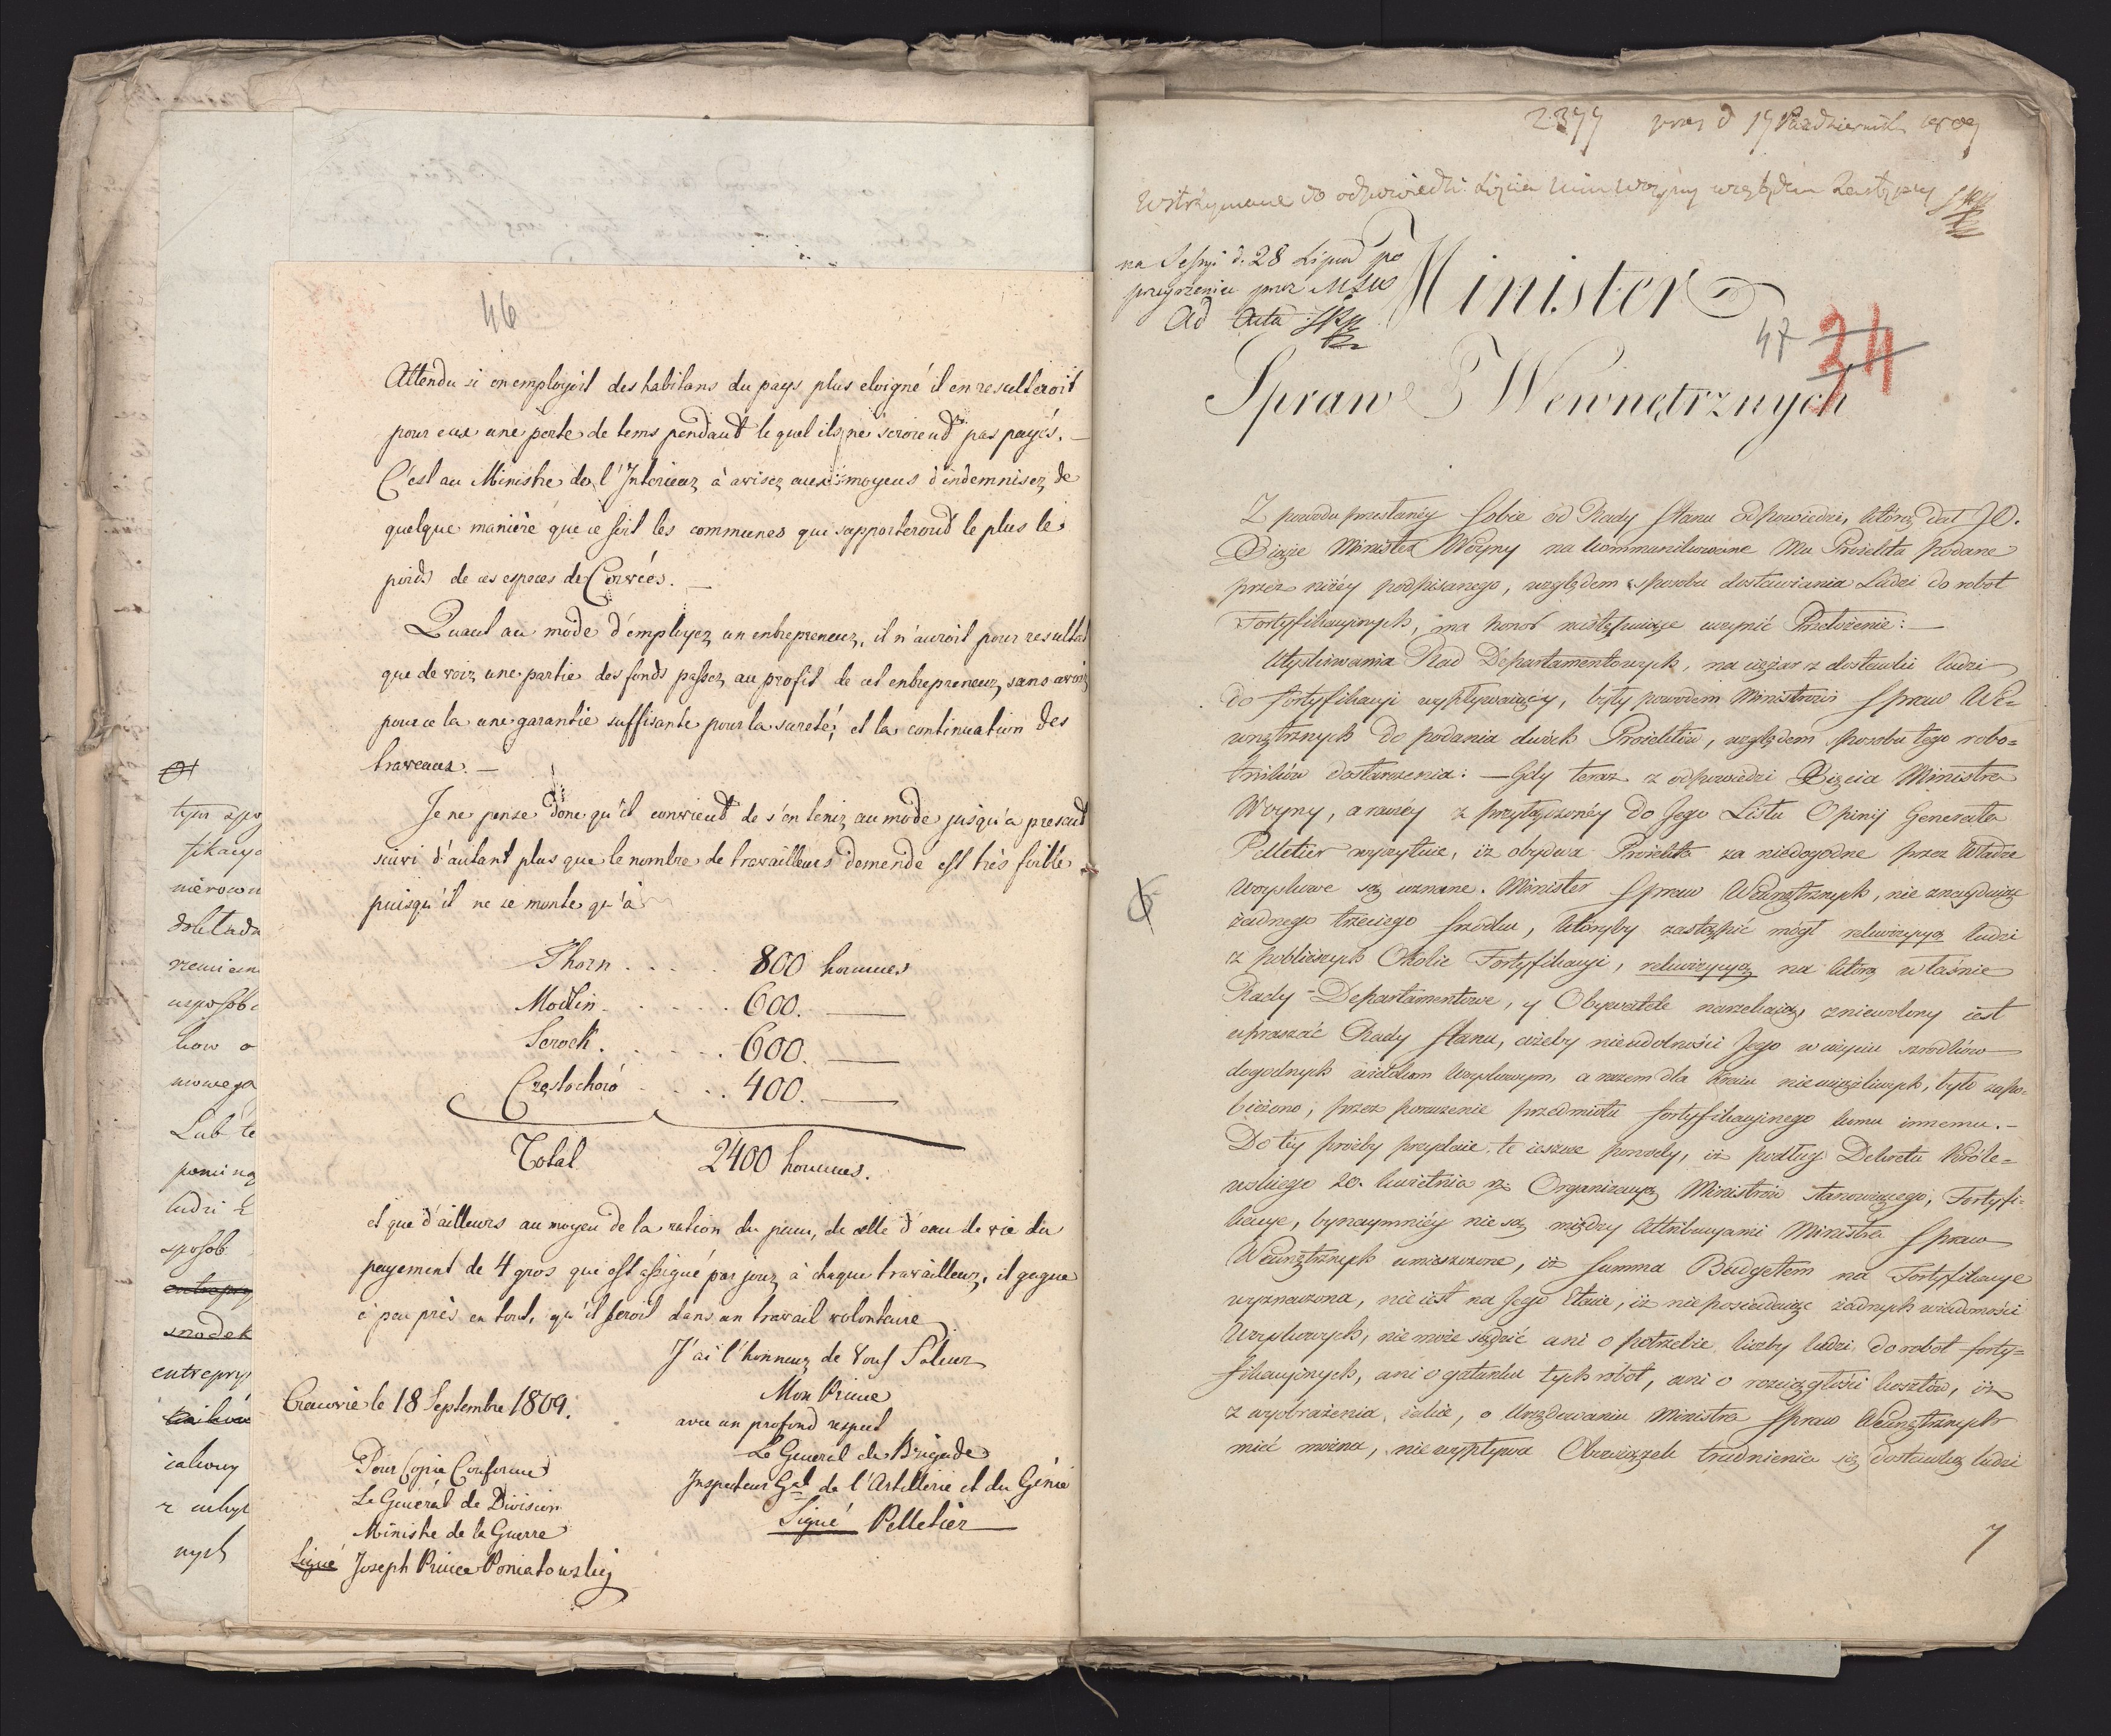 46
Attendu si on employoit des habitans du pays plus eloigné il en resulteroit
pour eux une perte de tems pendant le quel ils ne seroient pas payés. —
C'est au Ministre de l'Interieur à aviser aux moyens d'indemniser de
quelque manière que ce soit les communes qui supporteront le plus le
poids de ces especes de Corvées. —
Quant au mode d'employer un entrepreneur, il n'auroit pour resultat
que de voir une partie des fonds passer au profit de cet entrepreneur, sans avoir
pour ce la une garantie suffisante pour la sureté, et la continuation des
traveaux. —
Je ne pense donc qu'il convient de s'en tenir au mode jusqu'a present
suivi d'autant plus que le nombre de travailleurs demendé est très foible
puisqu'il ne se monte qu'à
Thorn . . . . . 800 hommes
Modlin . . . . . 600. —
Serock . . . . . 600. —
Częstochow . . . . 400. —
Total 2400 hommes.
et que d'ailleurs au moyen de la ration du pain, de celle d'eau de vie du
payement de 4 gros qui est assigné par jour à chaque travailleur, il gagne
à peu près en tout, qu'il feroit dans un travail volontaire
J'ai l'honneur de Vous Saluer
Mon Prince
avec un profond respect
Le General de Brigade
Inspecteur Gal de l'Artillerie et du Génie
Signé Pelletier
Cracovie le 18 Septembre 1809.
Pour Copie Conforme
Le Général de Division
Ministre de la Guerre
Signé Joseph Prince Poniatowski
tym spo
fikacyo
nierown
dokłada
rzemien
usposob
kow o
nowega
Lub te
pomi na
ludzi z
sposob
entrepry
srodek
entrepry
iakowy
z uchyl
nych
2377 prez d 17 Pazdziernik 1809
Wstrzymane do odpowiedzi Xięcia Min Woyny względem Zastępcy
na Sessyi d. 28 Lipca po
przeyrzeniu przez MSW
Ad Acta
Minister
47 34
Spraw Wewnętrznych
Z powodu przesłanéy sobie od Rady Stanu Odpowiedzi, którą dał JO.
Xiąże Minister Woyny na kommunikowane Mu Proiekta podane
przez niżéy podpisanego, względem sposobu dostawiania Ludzi do robot
Fortyfikacyinych, ma honor następuiące uczynić Przełożenie: —
Utyskiwania Rad Departamentowych, na ciężar z dostawki ludzi
do fortyfikacyi wypływaiący, były powodem Ministrowi Spraw We-
wnętrznych do podania dwóch Proiektów, względem sposobu tego robo=
tników dostarczenia: — Gdy teraz z odpowiedzi Xięcia Ministra
Woyny, a raczéy z przyłączonéy do Jego Listu Opinii Generała
Pelletier wyczytuie, iż obydwa Proiekta za niedogodne przez Władze
Woyskowe są uznane. Minister Spraw Wewnętrznych, nie znayduiąc
żadnego trzeciego środku, któryby zastąpić mógł rekwizycyą ludzi
z pobliższych Okolic Fortyfikacyi, rekwizycyą na którą właśnie
Rady Departamentowe, y Obywatele narzekaią, zniewolony iest
upraszać Rady Stanu, ażeby nieudolności Jego w użyciu srodków
dogodnych widokom Woyskowym, a razem dla Kraiu nieuciążliwych, było zapo-
bieżono, przez poruczenie przedmiotu fortyfikacyinego komu innemu. —
Do téy prośby przydaie te ieszcze powody, iż podług Dekretu Króle=
wskiego 20. kwietnia Organizacyą Ministrów stanowiącego, Fortyfi-
kacye, bynaymniéy nie są między Attrybucyami Ministra Spraw
Wewnętrznych umieszczone, iż Summa Budgetem na Fortyfikacye
wyznaczona, nie iest na Jego Etacie, iż nieposiadaiąc żadnych wiadomości
Woyskowych, nie może sądzić ani o potrzebie liczby ludzi do robot forty=
fikacyinych, ani o gatunku tych robot, ani o rozciągłości kosztów, iż
z wyobrażenia, iakie, o Urzędowaniu Ministra Spraw Wewnętrznych
mieć można, nie wypływa Obowiązek trudnienia się dostawką ludzi
7